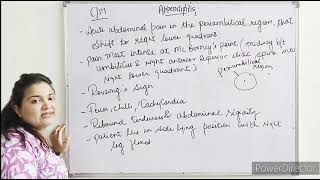 C/M
Appendicitis
- Acute abdominal pain in the periumbilical region, that
shift to right lower quadrant.
- Pain most intense at Mc Burney's point (midway b/t
umbilicus & right anterior superior iliac spine into
right lower quadrant)
periumbilical
region
- Rovsing's sign
- Fever, chills, Tachycardia
- Rebound Tenderness & abdominal rigidity
- Patient lies in side lying position with right
leg flexed
PowerDirector